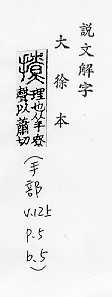 說文解字
大徐本
撩 理也从手尞
聲洛蕭切
(手部
v.12上
p.5
b.5)